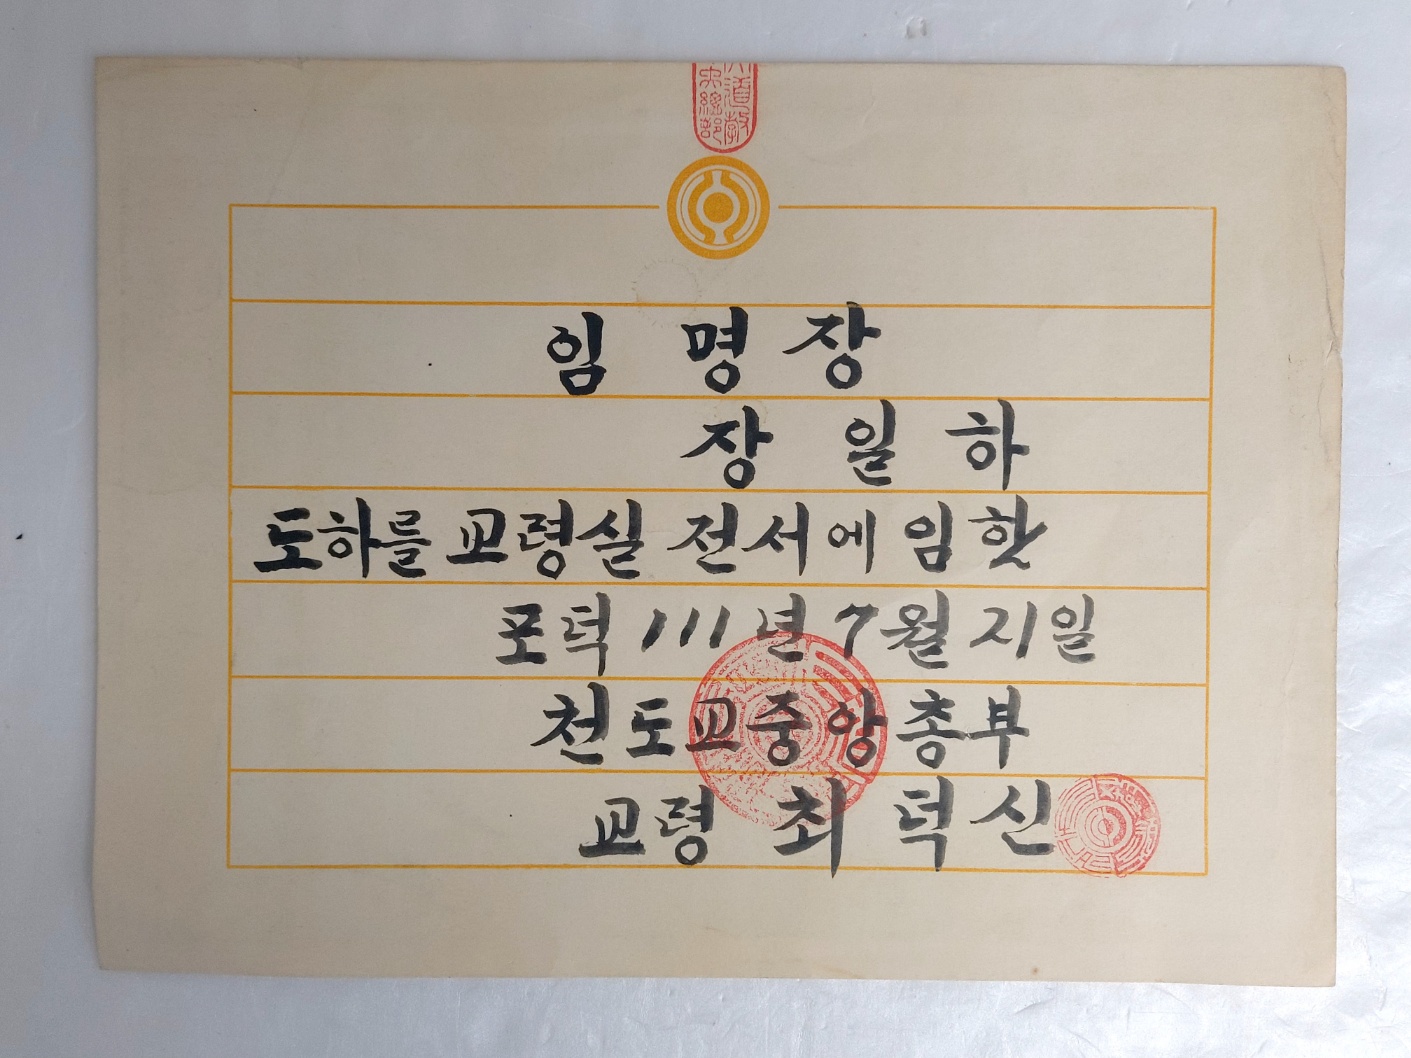 임 명 장
장 일 하
도하를 교령실 전서에 임함
포덕 111년 7월 지일
천도교중앙총부
교령 최 덕 신